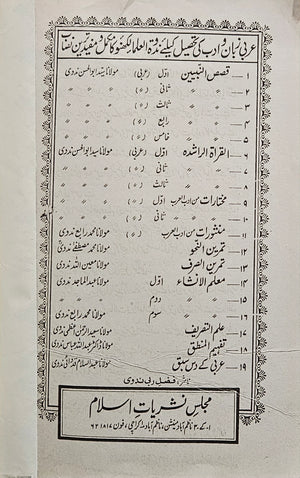 عربی زبان و ادب کی تحصیل کیلئے ندوۃ العلماء لکھنؤ کا مکمل و مفید ترین نصاب
۱ — قصص النبیین اوّل (عربی) مولانا سید ابوالحسن ندوی
۲ — " " ثانی ( " ) " " "
۳ — " " ثالث ( " ) " " "
۴ — " " رابع ( " ) " " "
۵ — " " خامس ( " ) " " "
۶ — القراۃ الراشدہ اوّل (عربی) مولانا سید ابوالحسن ندوی
۷ — " " ثانی ( " ) " " "
۸ — " " ثالث ( " ) " " "
۹ — مختارات من ادب العرب اوّل ( " ) " " "
۱۰ — " " ثانی ( " ) " " "
۱۱ — منثورات من ادب العرب ( " ) مولانا محمد رابع ندوی
۱۲ — تمرین النحو مولانا محمد مصطفیٰ ندوی
۱۳ — تمرین الصرف مولانا معین اللہ ندوی
۱۴ — معلم الانشاء اوّل مولانا عبدالماجد ندوی
۱۵ — " " دوم " " "
۱۶ — " " سوم مولانا محمد رابع ندوی
۱۷ — علم التصریف مولانا سعید الرحمن اعظمی ندوی
۱۸ — تفہیم المنطق ڈاکٹر عبداللہ عباس ندوی
۱۹ — عربی کے دس سبق مولانا عبدالسلام قدوائی ندوی
ناشر: فضل ربی ندوی
مجلس نشریات اسلام
۱۔ کے۔۳ ناظم آباد مینشن، ناظم آباد ۱ کراچی، فون ۶۲۱۸۱۷